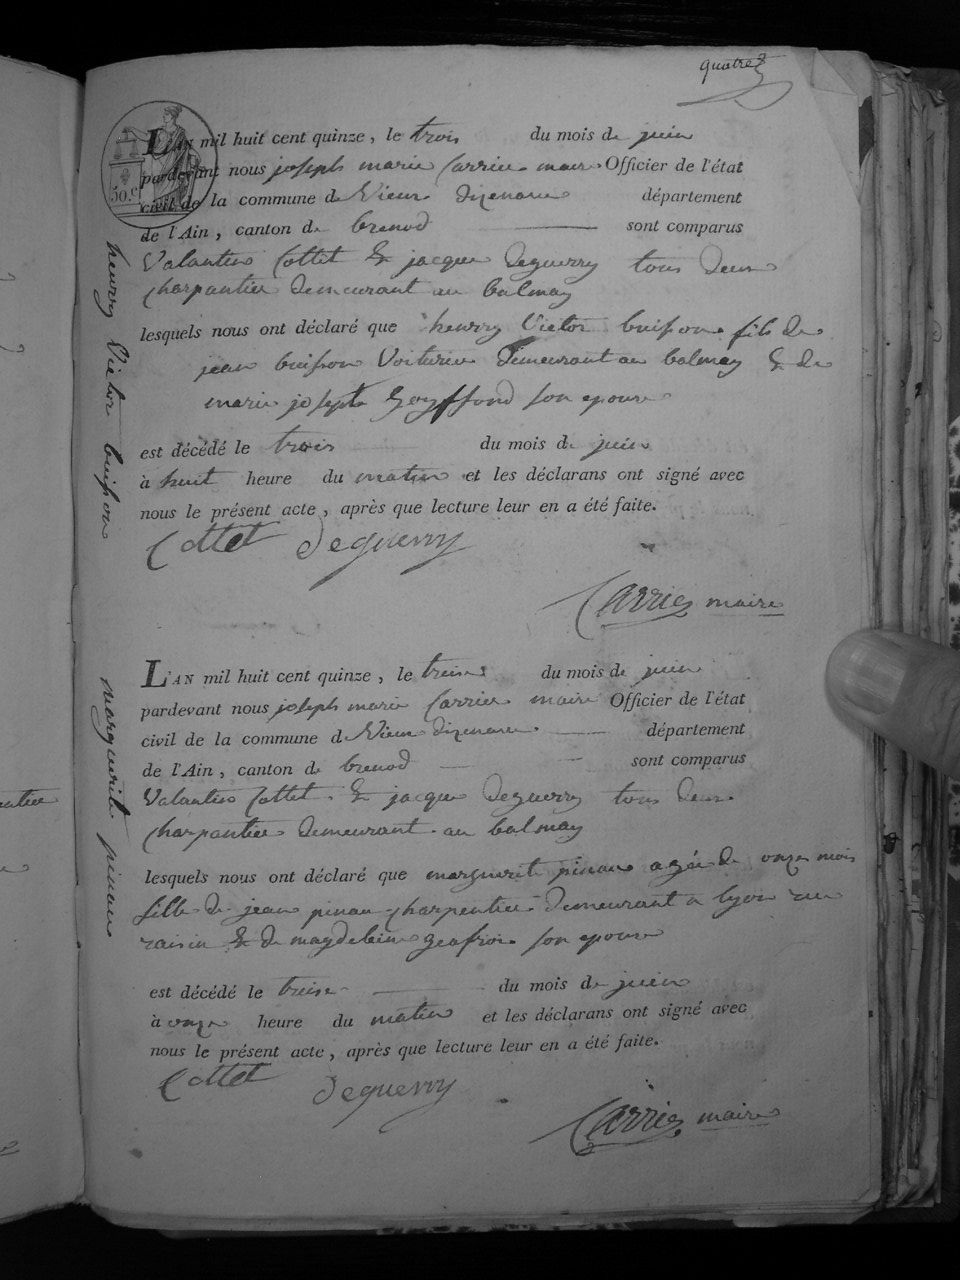 quatre
50.c
L'AN mil huit cent quinze, le trois du mois de juin
pardevant nous joseph marie Carrier maire Officier de l'état
civil de la commune de Vieux dizenave département
de l'Ain, canton de brenod sont comparus
Valantin Cottet & jacque Deguerry tous deux
charpantier demeurant au balmay
lesquels nous ont déclaré que henrry Victor buisson fils de
jean buisson Voiturier demeurant au balmay & de
marie joseph Goyffond son epouse
est décédé le trois du mois de juin
à huit heure du matin et les déclarans ont signé avec
nous le présent acte, après que lecture leur en a été faite.
Cottet Deguerry
Carrier maire
henrry Victor buisson
L'AN mil huit cent quinze, le treise du mois de juin
pardevant nous joseph marie Carrier maire Officier de l'état
civil de la commune de Vieux dizenave département
de l'Ain, canton de brenod sont comparus
Valantin Cottet & jacque Deguerry tous deux
charpantier demeurant au balmay
lesquels nous ont déclaré que marguerite pinau agée de onze mois
fille de jean pinau charpentier demeurant a lyon rue
raisin & de magdeleine geafroi son epouse
est décédé le treise du mois de juin
à onze heure du matin et les déclarans ont signé avec
nous le présent acte, après que lecture leur en a été faite.
Cottet Deguerry
Carrier maire
marguerite pinau